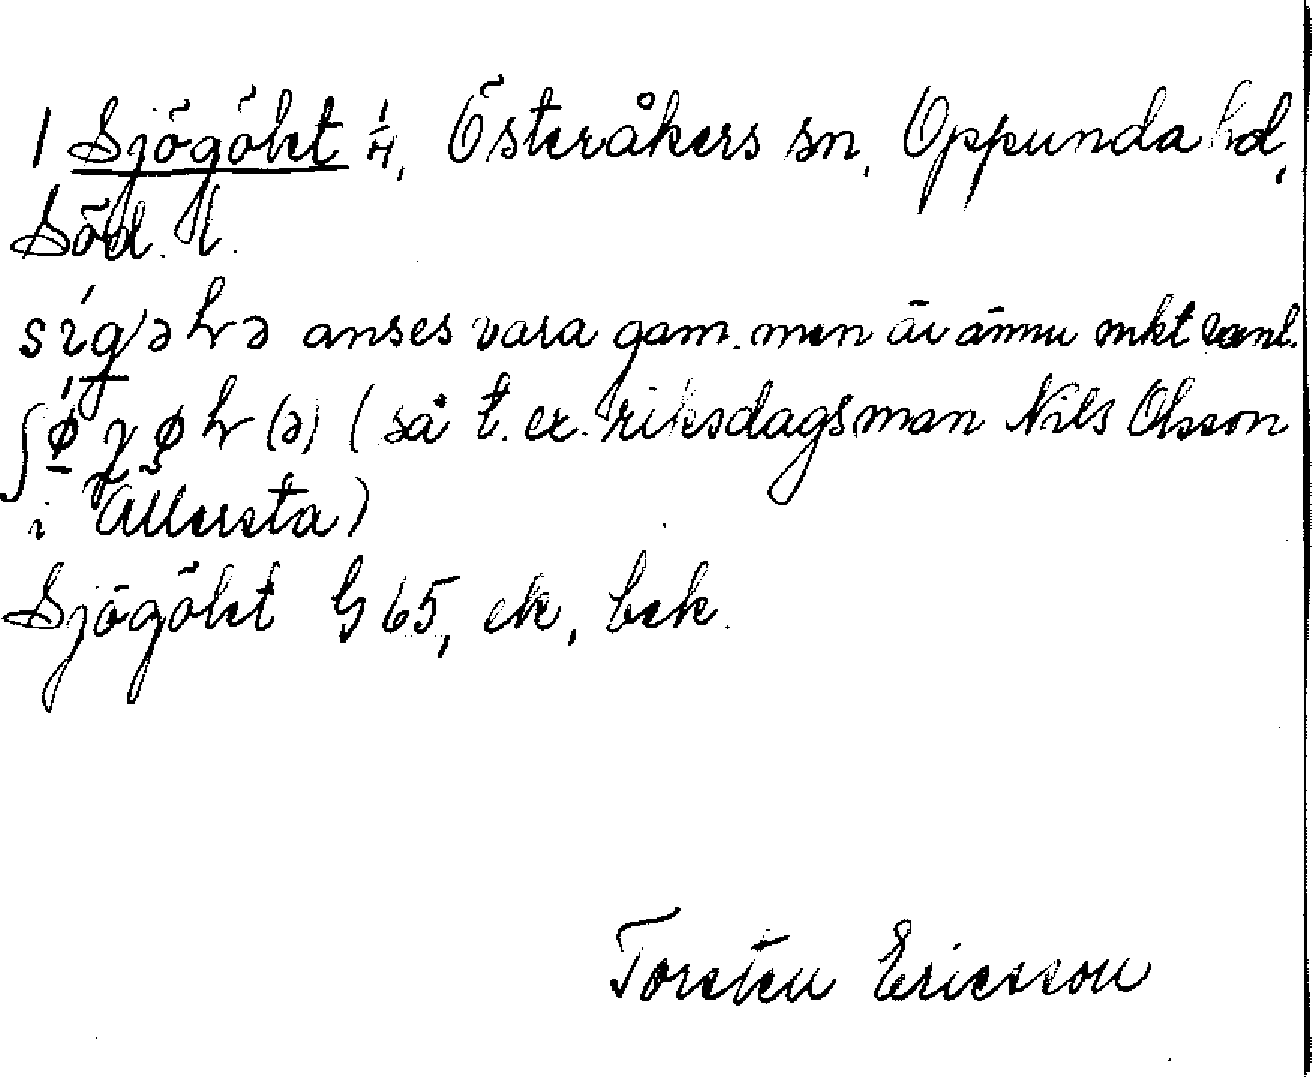 1 Sjögölet 1/4, Österåkers sn, Oppunda hd,
Söd. l.
anses vara gam. men är ännu mkt vanl.
(så t. ex. riksdagsman Nils Olsson
i Ållersta)
Sjögölet G 65, ek, bek.
Torsten Ericsson